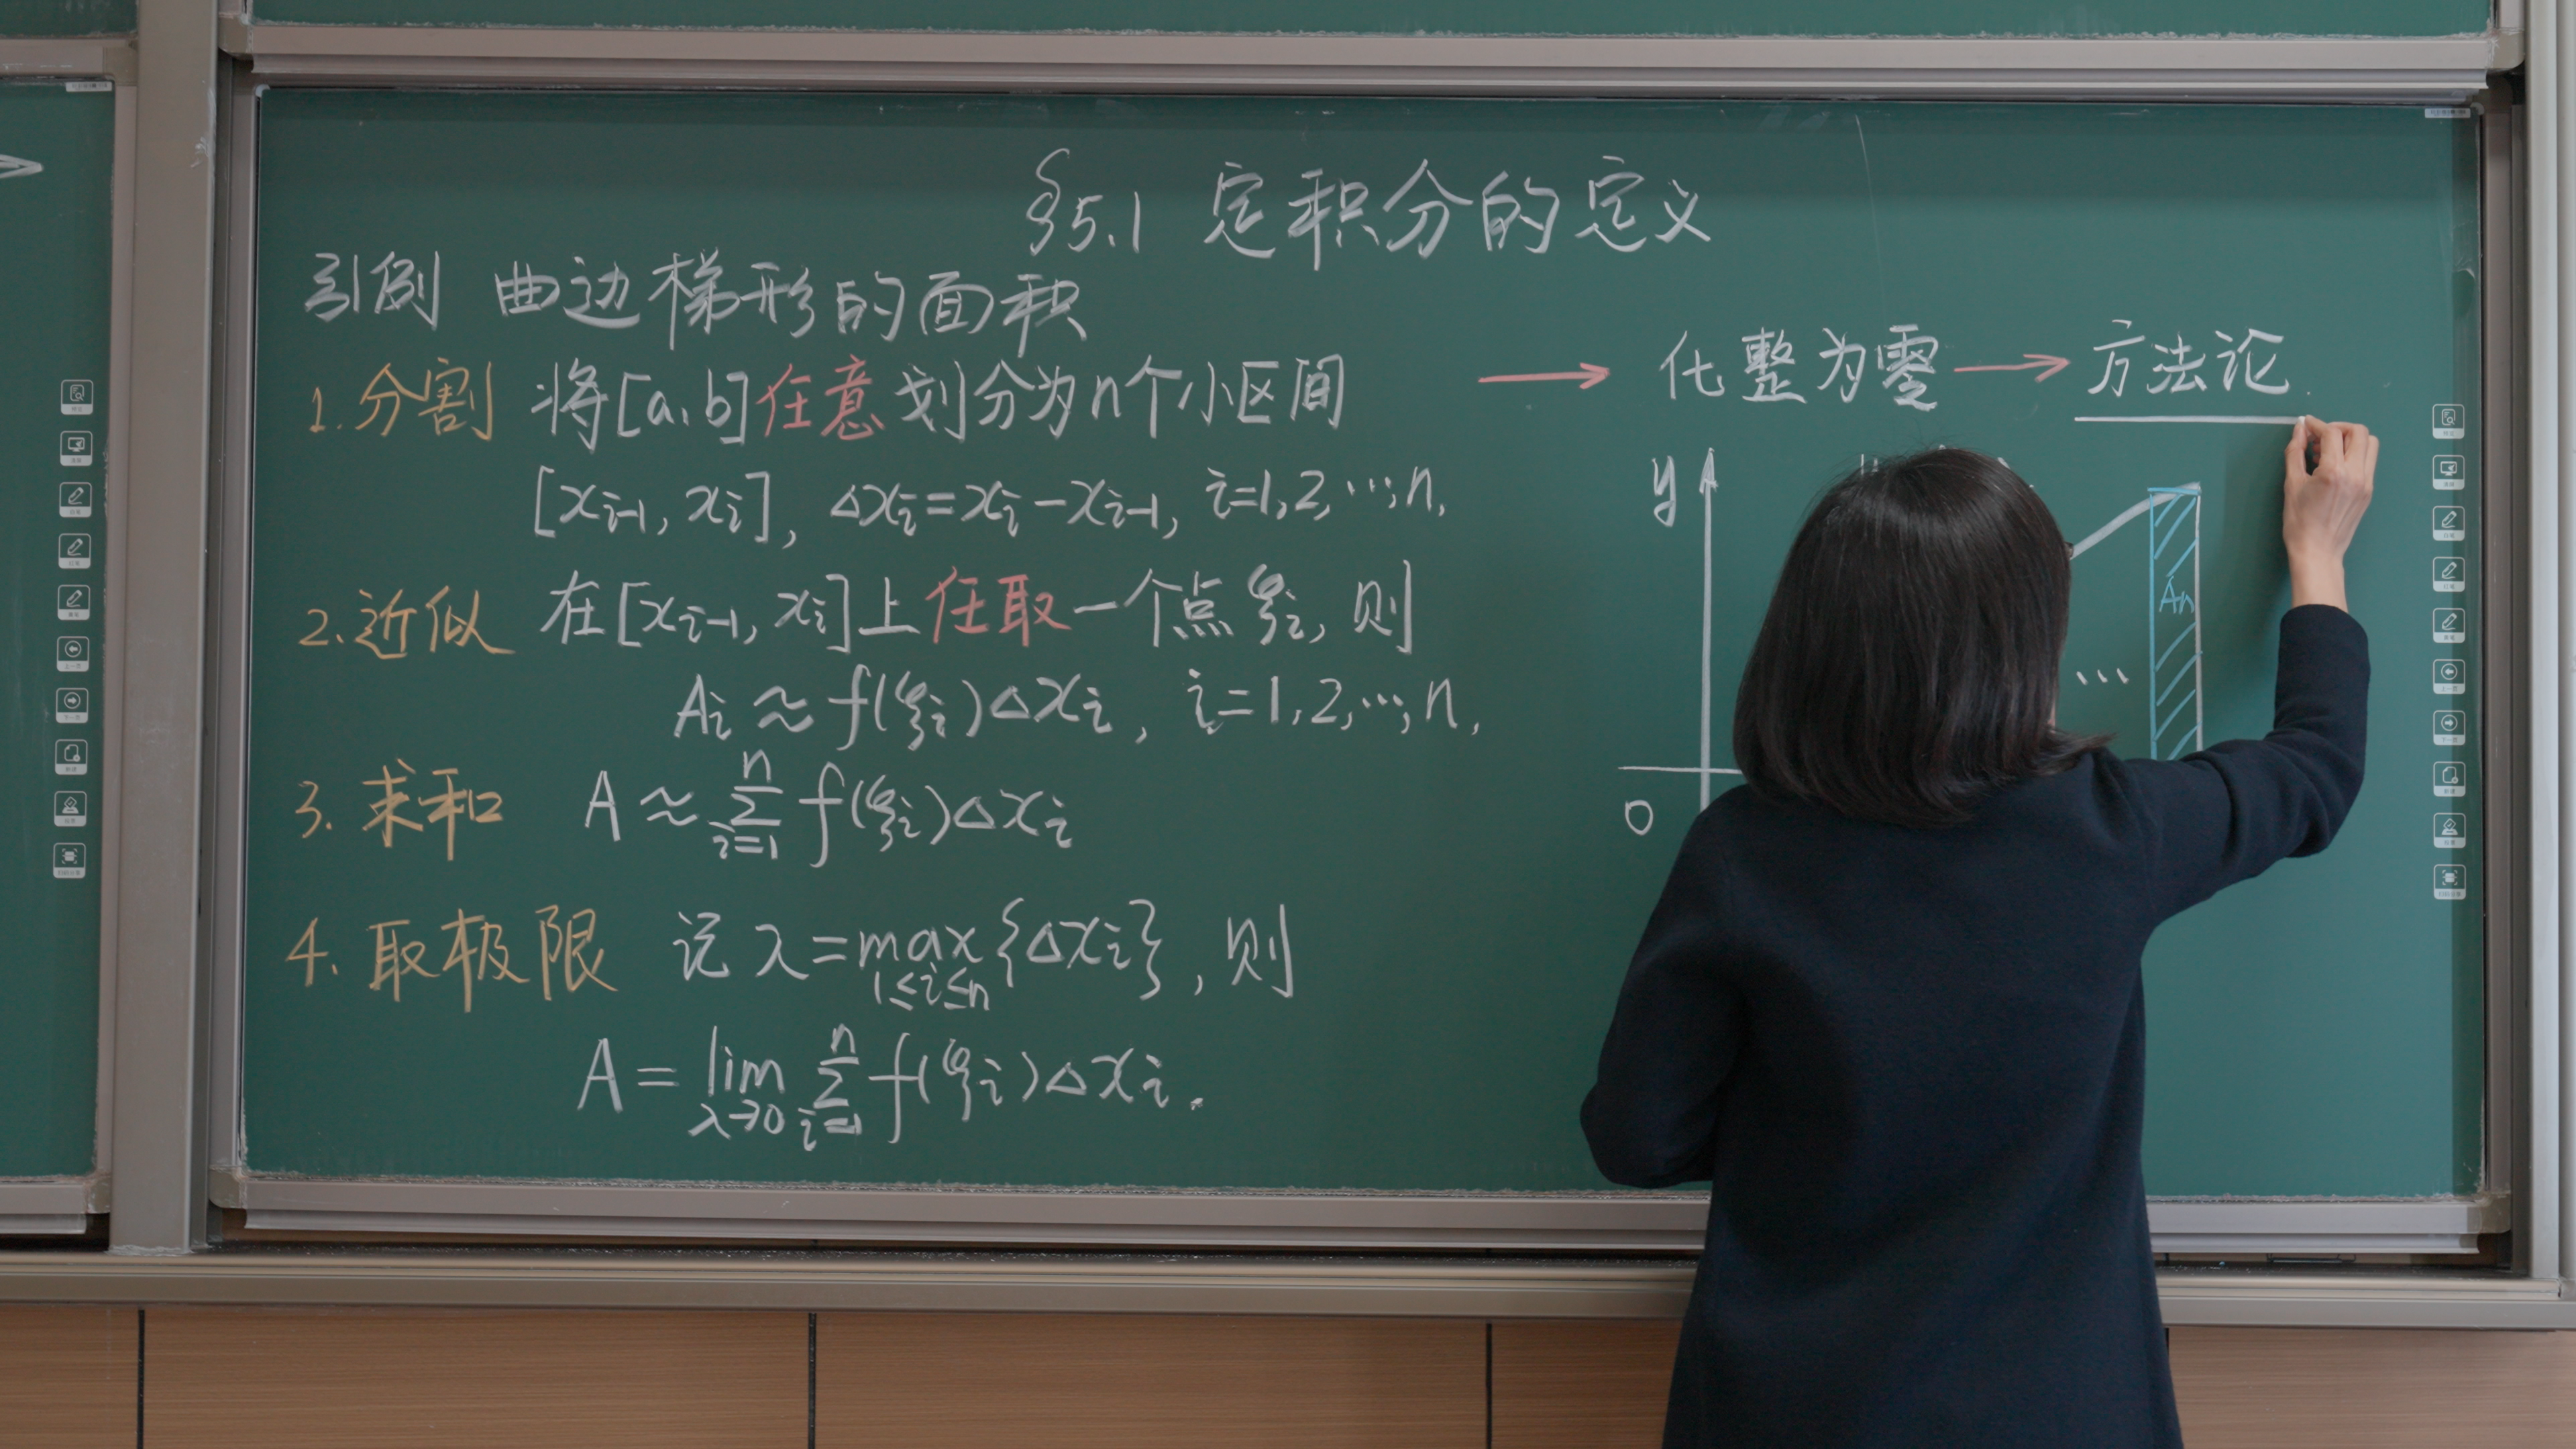 §5.1 定积分的定义
引例 曲边梯形的面积
1. 分割 将[a,b]任意划分为n个小区间 → 化整为零 → 方法论
[xᵢ₋₁, xᵢ], Δxᵢ=xᵢ-xᵢ₋₁, i=1,2,…,n,
2. 近似 在[xᵢ₋₁, xᵢ]上任取一个点ξᵢ, 则
Aᵢ≈f(ξᵢ)Δxᵢ, i=1,2,…,n,
3. 求和 A≈∑ⁿᵢ₌₁ f(ξᵢ)Δxᵢ
4. 取极限 记 λ=max{Δxᵢ}, 则
1≤i≤n
A=lim ∑ⁿᵢ₌₁ f(ξᵢ)Δxᵢ.
λ→0
y
Aₙ
…
0